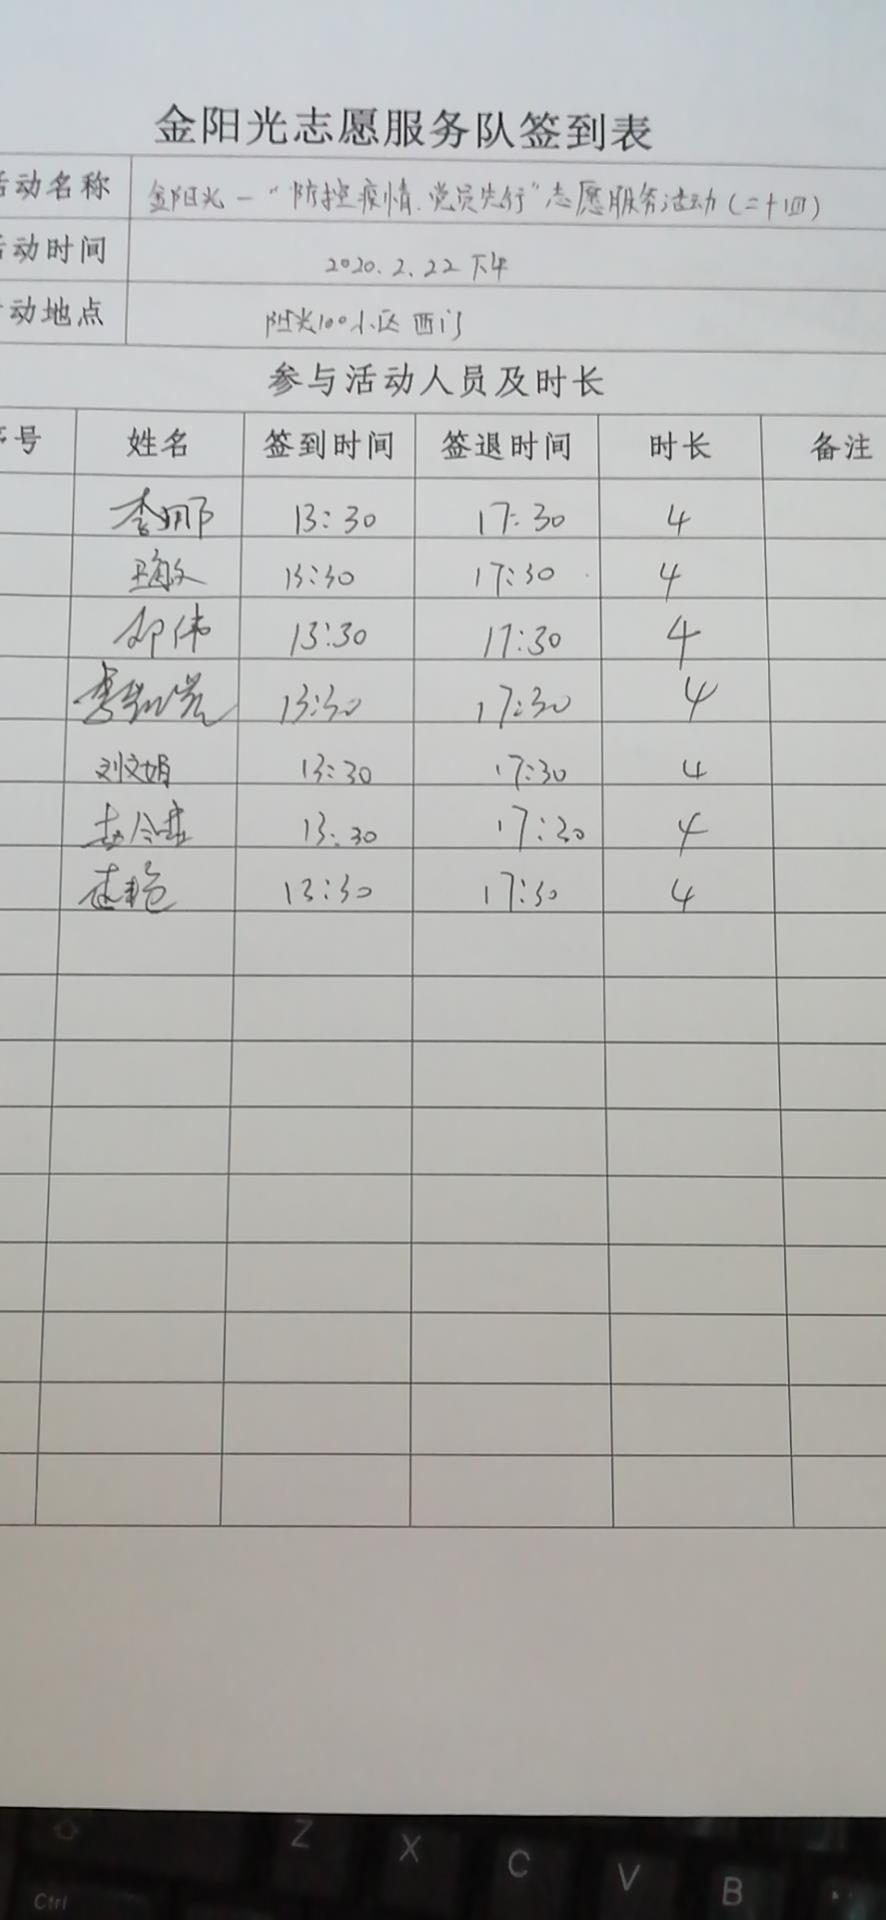 金阳光志愿服务队签到表
活动名称 金阳光—“防控疫情、党员先行”志愿服务活动(二十四)
活动时间 2020.2.22 下午
活动地点 阳光100小区 西门
参与活动人员及时长
序号 姓名 签到时间 签退时间 时长 备注
李娜 13:30 17:30 4
王敏 13:30 17:30 4
邹伟 13:30 17:30 4
13:30 17:30 4
刘文娟 13:30 17:30 4
13:30 17:30 4
13:30 17:30 4
Z X C V B
Ctrl